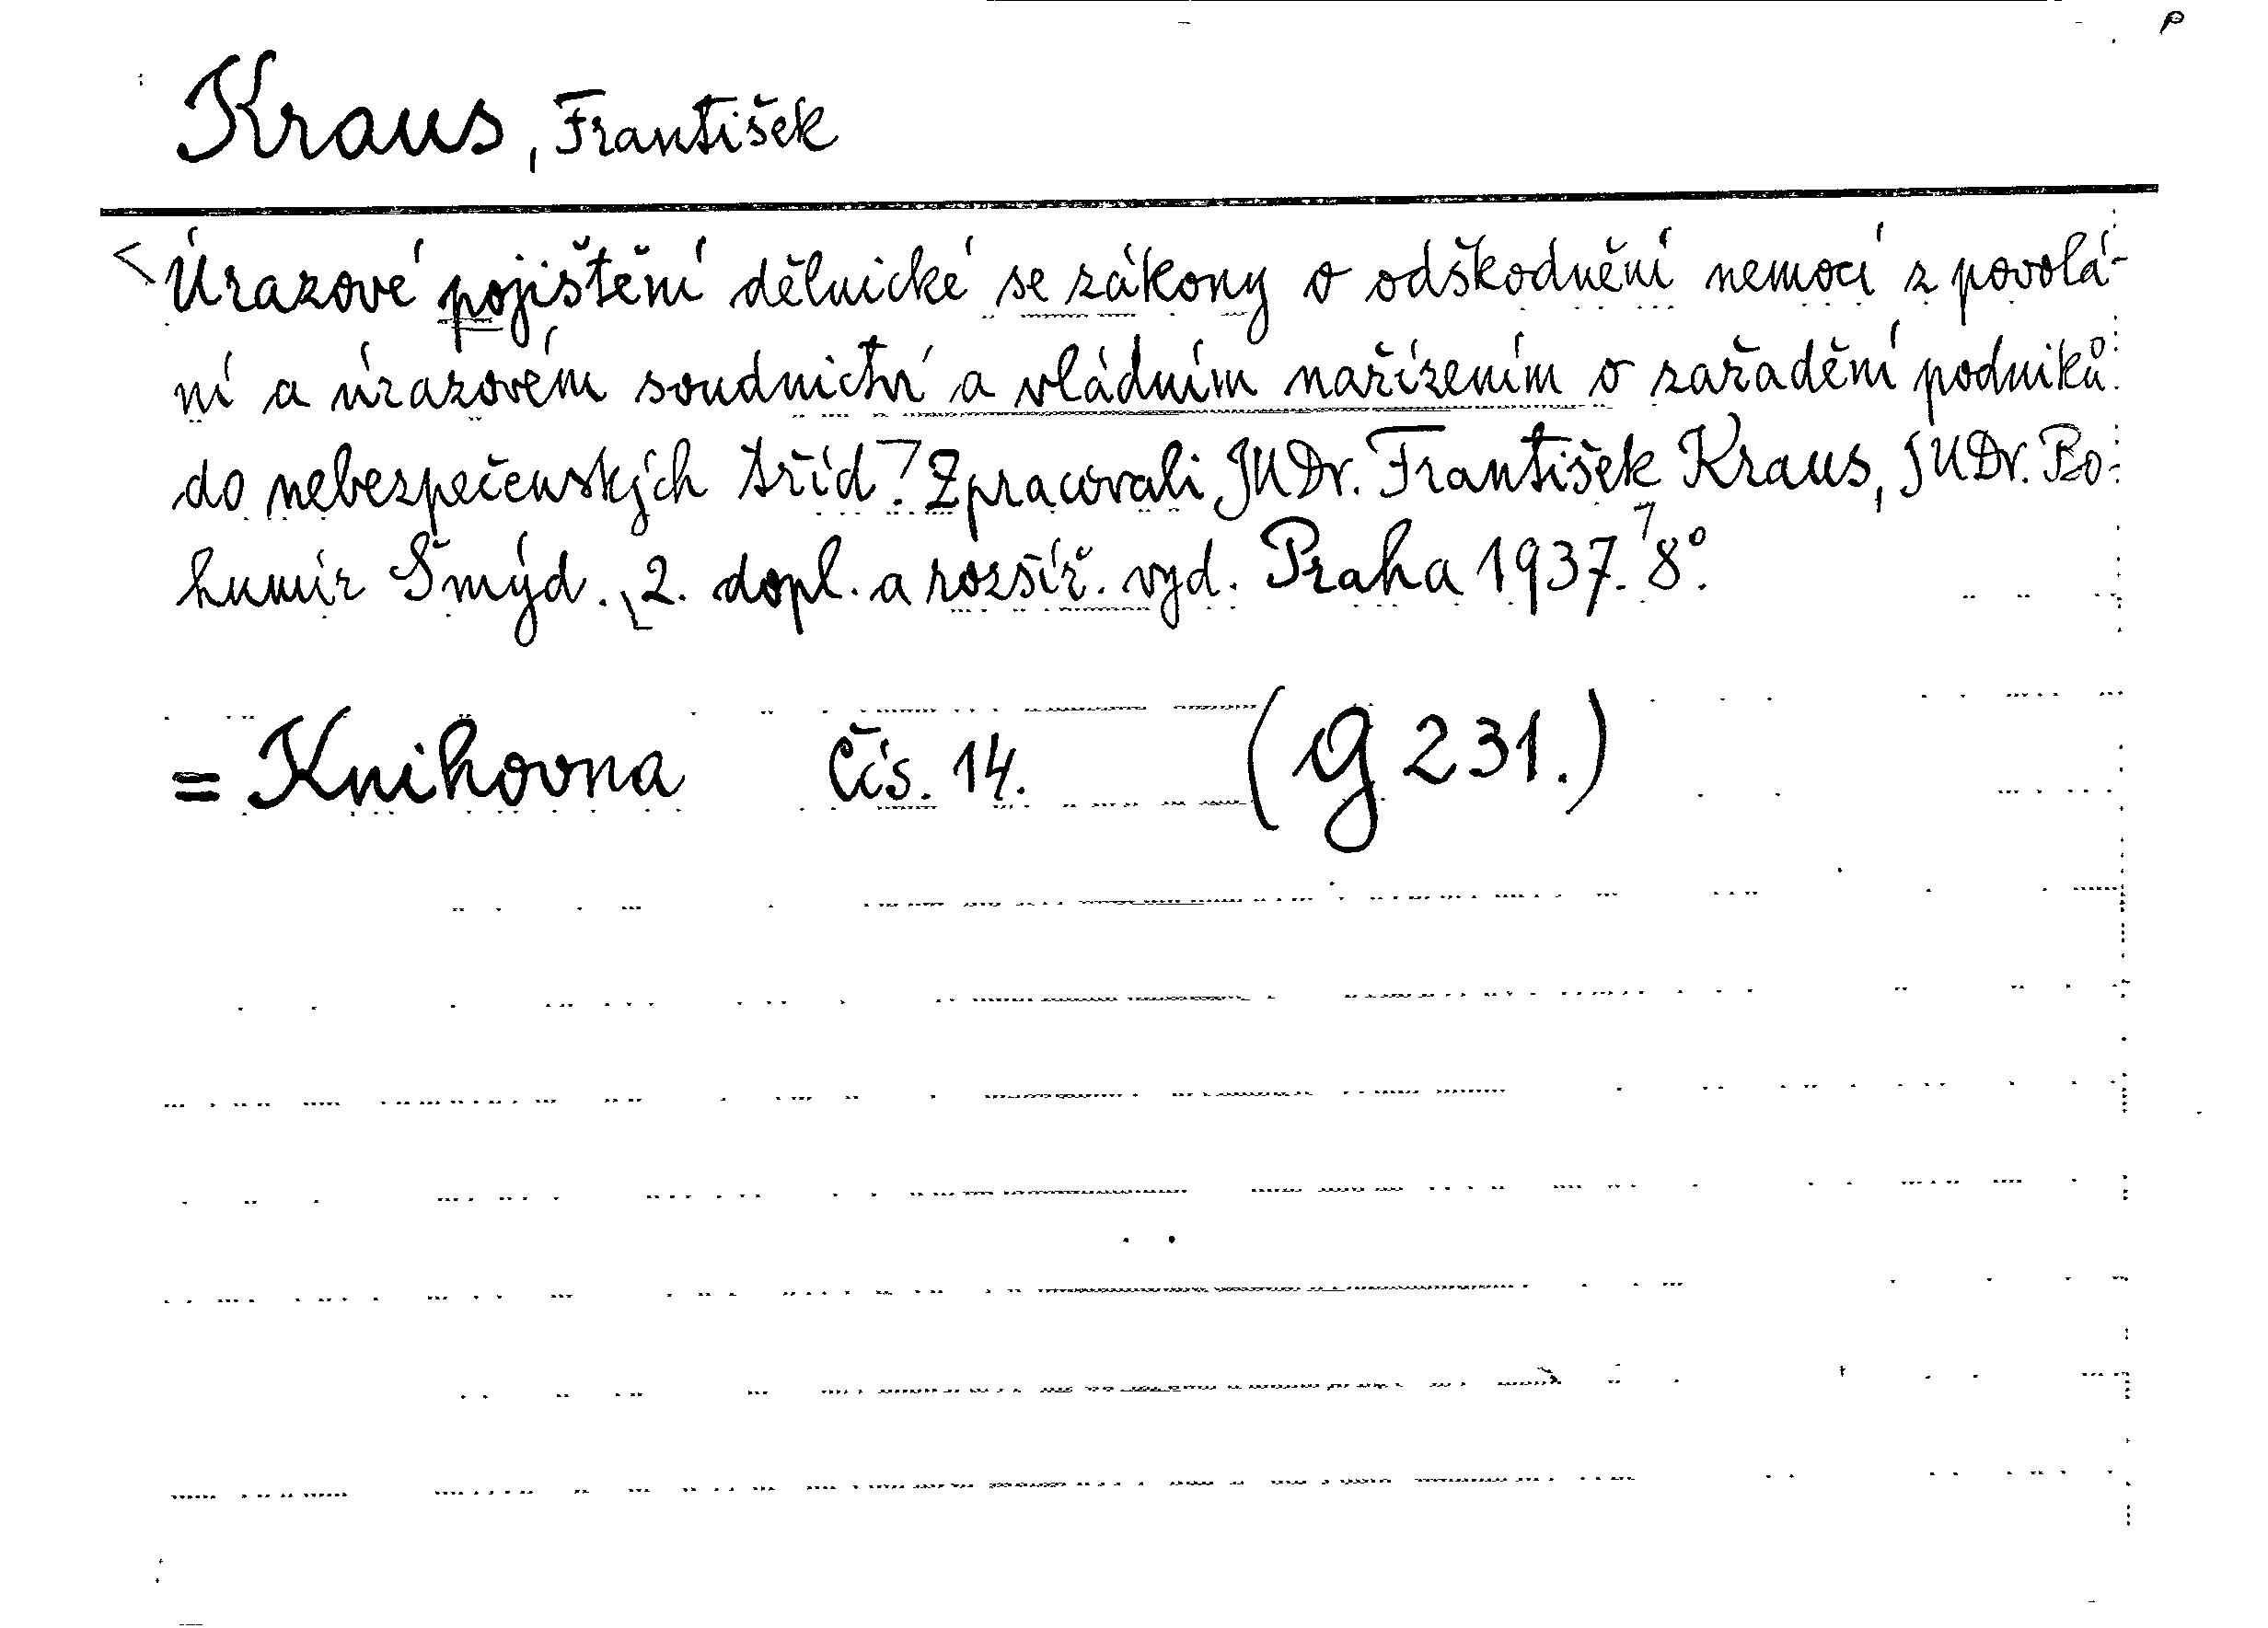 Kraus, František
Úrazové pojištění dělnické se zákony o odškodnění nemocí z povolá-
ní a úrazovém soudnictví a vládním nařízením o zařadění podniků
do nebezpečenských tříd. Zpracovali JUDr. František Kraus, JUDr. Bo-
humír Šmýd. 2. dopl. a rozšíř. vyd. Praha 1937. 8°.
= Knihovna čís. 14. (G 231.)